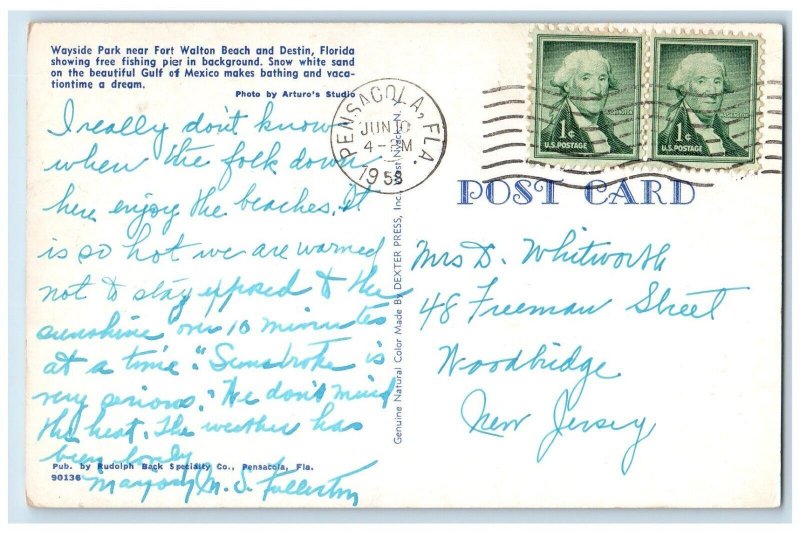 Wayside Park near Fort Walton Beach and Destin, Florida
showing free fishing pier in background. Snow white sand
on the beautiful Gulf of Mexico makes bathing and vaca-
tiontime a dream.
Photo by Arturo's Studio
I really don't know
when the folk down
here enjoy the beaches. It
is so hot we are warned
not to stay exposed to the
sunshine over 10 minutes
at a time. "Sunstroke is
very serious." We don't mind
the heat. The weather has
been lovely
M. S. Fullerton
Pub. by Rudolph Back Specialty Co., Pensacola, Fla.
90136
Genuine Natural Color Made By DEXTER PRESS, Inc.
PENSACOLA, FLA.
JUN 10
4-PM
1958
1¢
WASHINGTON
U.S. POSTAGE
1¢
WASHINGTON
U.S. POSTAGE
POST CARD
Mrs D. Whitworth
48 Freeman Street
Woodbridge
New Jersey